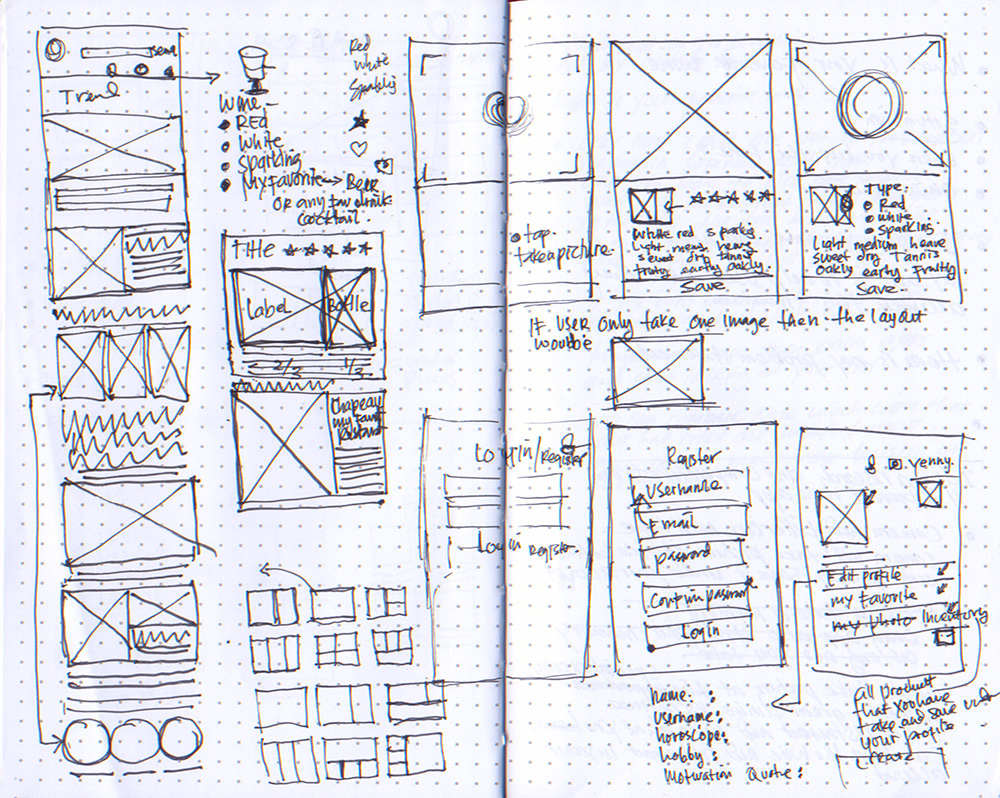 Trend
Wine
RED
White
Sparking
My Favorite → Beer
or any fav drink
cocktail.
Red
White
Sparkling
TITLE
Label
Bottle
2/3
1/3
Chapeau
my favo
tap
take a picture
White red sparkig
light meus heavy
sweet dry tannis
fruity earthy Oakly.
Save
Type.
Red
white
Sparking
Light medium heave
sweet dry Tannis
Oakly earthy Fruitly
Save.
If user only take one image then the layout
would be
Login/Register
Login Register.
Register
Username
Email
password
Confirm password
Login
Yenny.
Edit profile
my Favorite
my photo Inventory
name:
Username:
horoscope:
hobby:
Motivation Quote:
all product
that you have
take and save under
your profile
Create